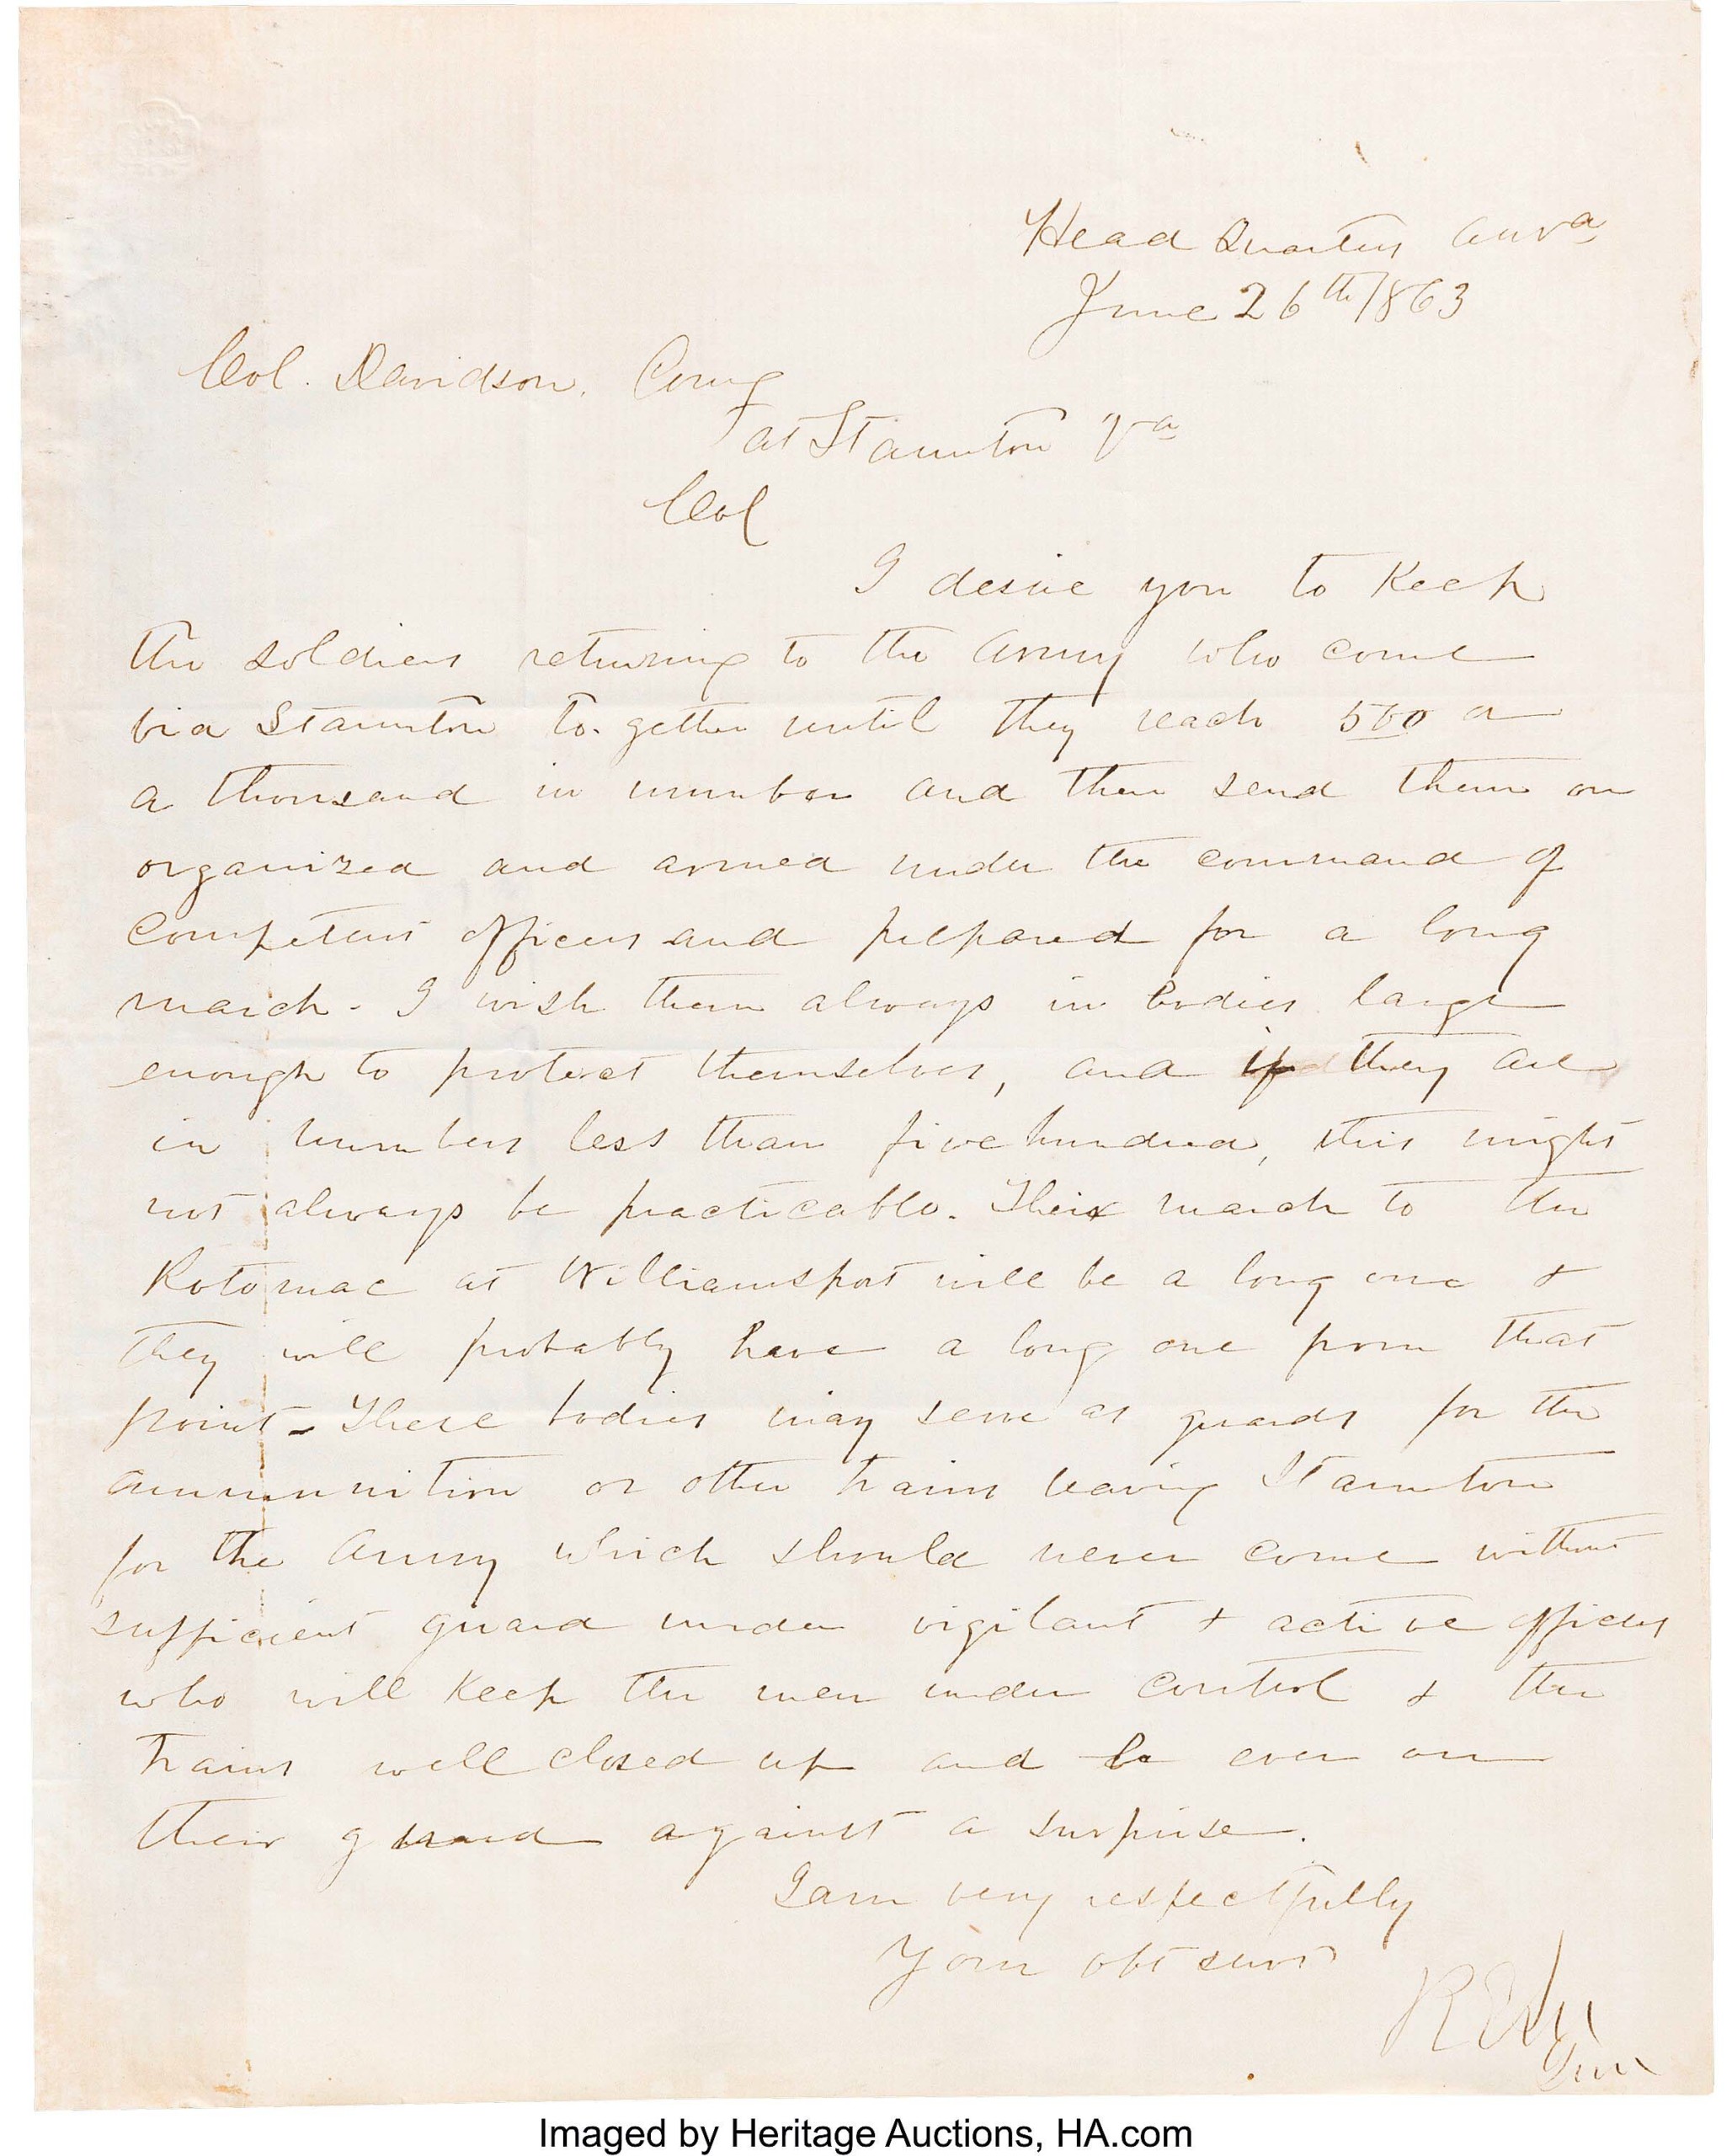 Head Quarters ANVa
June 26th 1863
Col. Davidson, Comg
at Staunton Va
Col
I desire you to Keep
the soldiers returning to the Army who come
via Staunton to-gether until they reach 500 or
a thousand in number and then send them on
organized and armed under the command of
Competent officers and prepared for a long
march - I wish them always in bodies large
enough to protect themselves, and if they are
in numbers less than five hundred, this might
not always be practicable. Their march to the
Potomac at Williamsport will be a long one &
they will probably have a long one from that
point - These bodies may serve as guards for the
ammunition or other trains leaving Staunton
for the Army which should never come without
sufficient guard under vigilant & active officers
who will Keep the men under Control & the
trains well closed up and be ever on
their guard against a surprise.
I am very respectfully
Your obt servt
R E Lee
Genl
Imaged by Heritage Auctions, HA.com